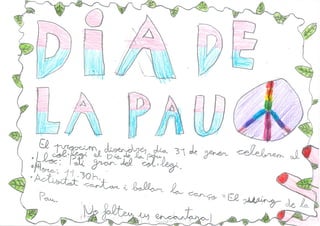 DIA DE
LA PAU
El proxim divendres dia 31 de gener celebrem al
col·legi el Dia de la pau
·Lloc: Pati gran del col·legi.
·Hora: 11.30h.
·Activitat cantar i ballar la canço "El swing de la
Pau.
¡No falteu us encantara!